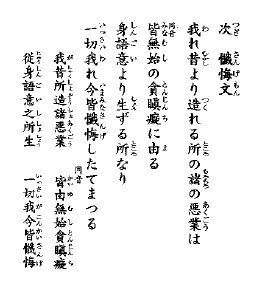 次 懺悔文
我れ昔より造れる所の諸の悪業は
同音
皆無始の貪瞋癡に由る
身語意より生ずる所なり
一切我れ今皆懺悔したてまつる
我昔所造諸悪業 同音 皆由無始貪瞋癡
従身語意之所生 一切我今皆懺悔